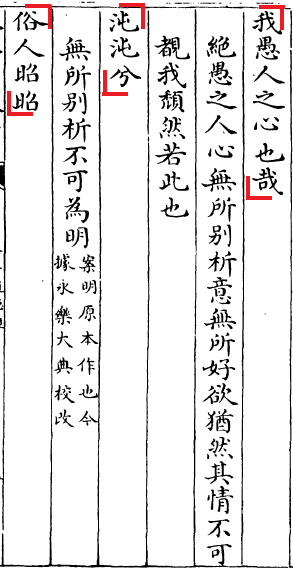 我愚人之心也哉
絶愚之人心無所别析意無所好欲猶然其情不可
覩我頽然若此也
沌沌兮
無所别析不可為明案明原本作也今
據永樂大典校改
俗人昭昭